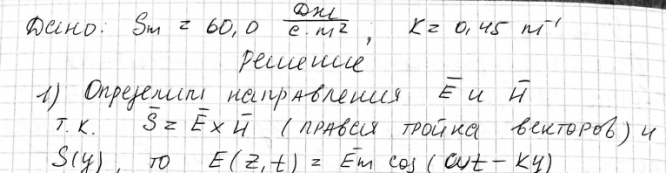 Дано: Sm = 60,0 Дж/с·м², K = 0,45 м⁻¹
Решение
1) Определим направления E̅ и H̅
т.к. S̅ = E̅ × H̅ (правая тройка векторов) и
S(y), то E(z,t) = E̅m cos(ωt − Ky)